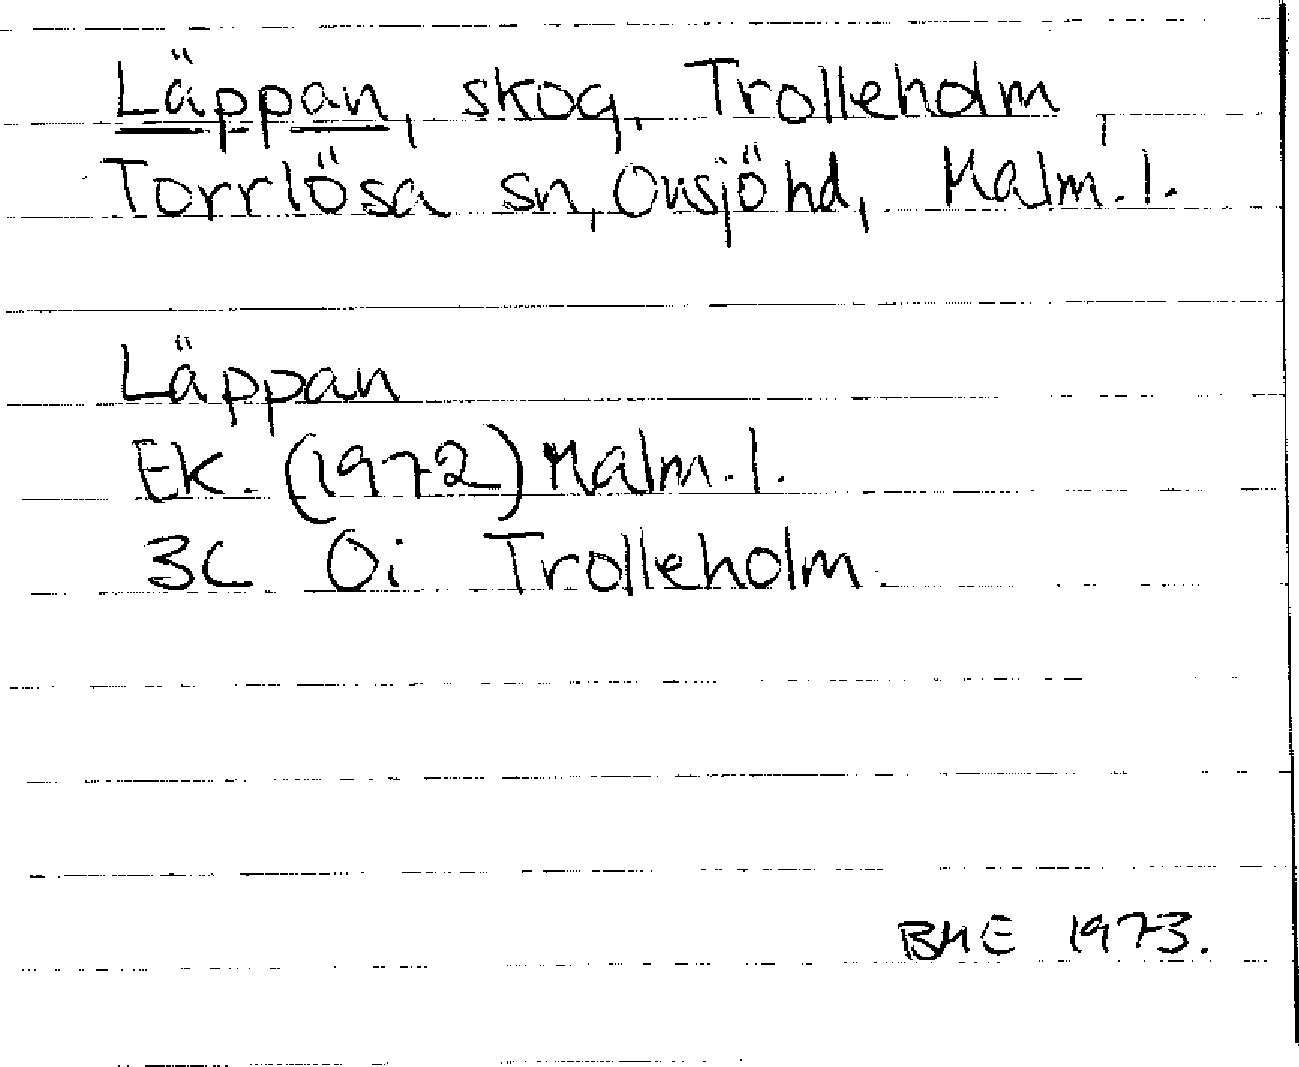 Läppan, skog, Trolleholm,
Torrlösa sn, Onsjö hd, Malm.l.
Läppan
EK. (1972) Malm.l.
3C 0i Trolleholm
BME 1973.